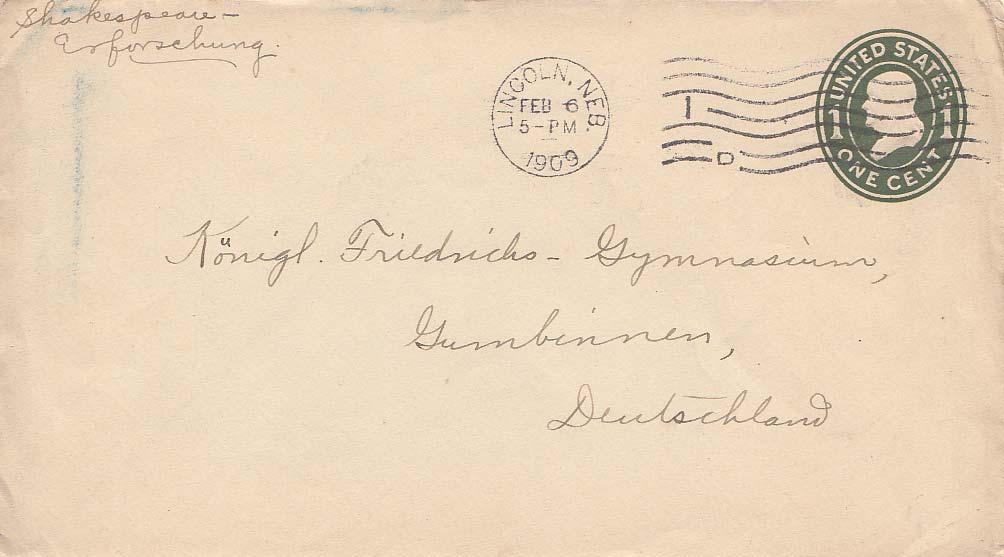 Shakespeare-
Erforschung.
LINCOLN, NEB.
FEB 6
5-PM
1909
1
D
UNITED STATES
1 1
ONE CENT
Königl. Friedrichs-Gymnasium,
Gumbinnen,
Deutschland